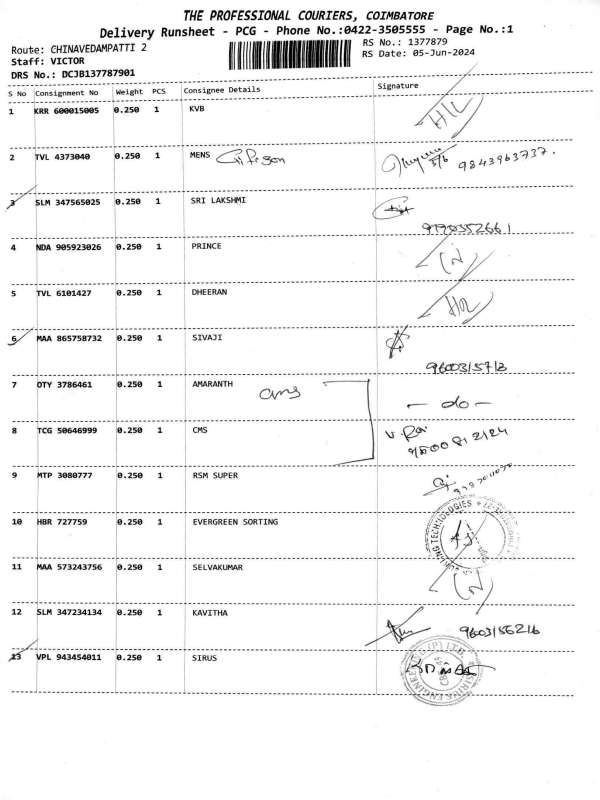 THE PROFESSIONAL COURIERS, COIMBATORE
Delivery Runsheet - PCG - Phone No.:0422-3505555 - Page No.:1
Route: CHINAVEDAMPATTI 2
RS No.: 1377879
Staff: VICTOR
RS Date: 05-Jun-2024
DRS No.: DCJB137787901
S No Consignment No Weight PCS Consignee Details Signature
1 KRR 600015005 0.250 1 KVB
2 TVL 4373040 0.250 1 MENS
9843963737.
3 SLM 347565025 0.250 1 SRI LAKSHMI
4 NDA 905923026 0.250 1 PRINCE
5 TVL 6101427 0.250 1 DHEERAN
6 MAA 865758732 0.250 1 SIVAJI
7 OTY 3786461 0.250 1 AMARANTH
- do -
8 TCG 50646999 0.250 1 CMS
9 MTP 3080777 0.250 1 RSM SUPER
10 HBR 727759 0.250 1 EVERGREEN SORTING
11 MAA 573243756 0.250 1 SELVAKUMAR
12 SLM 347234134 0.250 1 KAVITHA
13 VPL 943454011 0.250 1 SIRUS